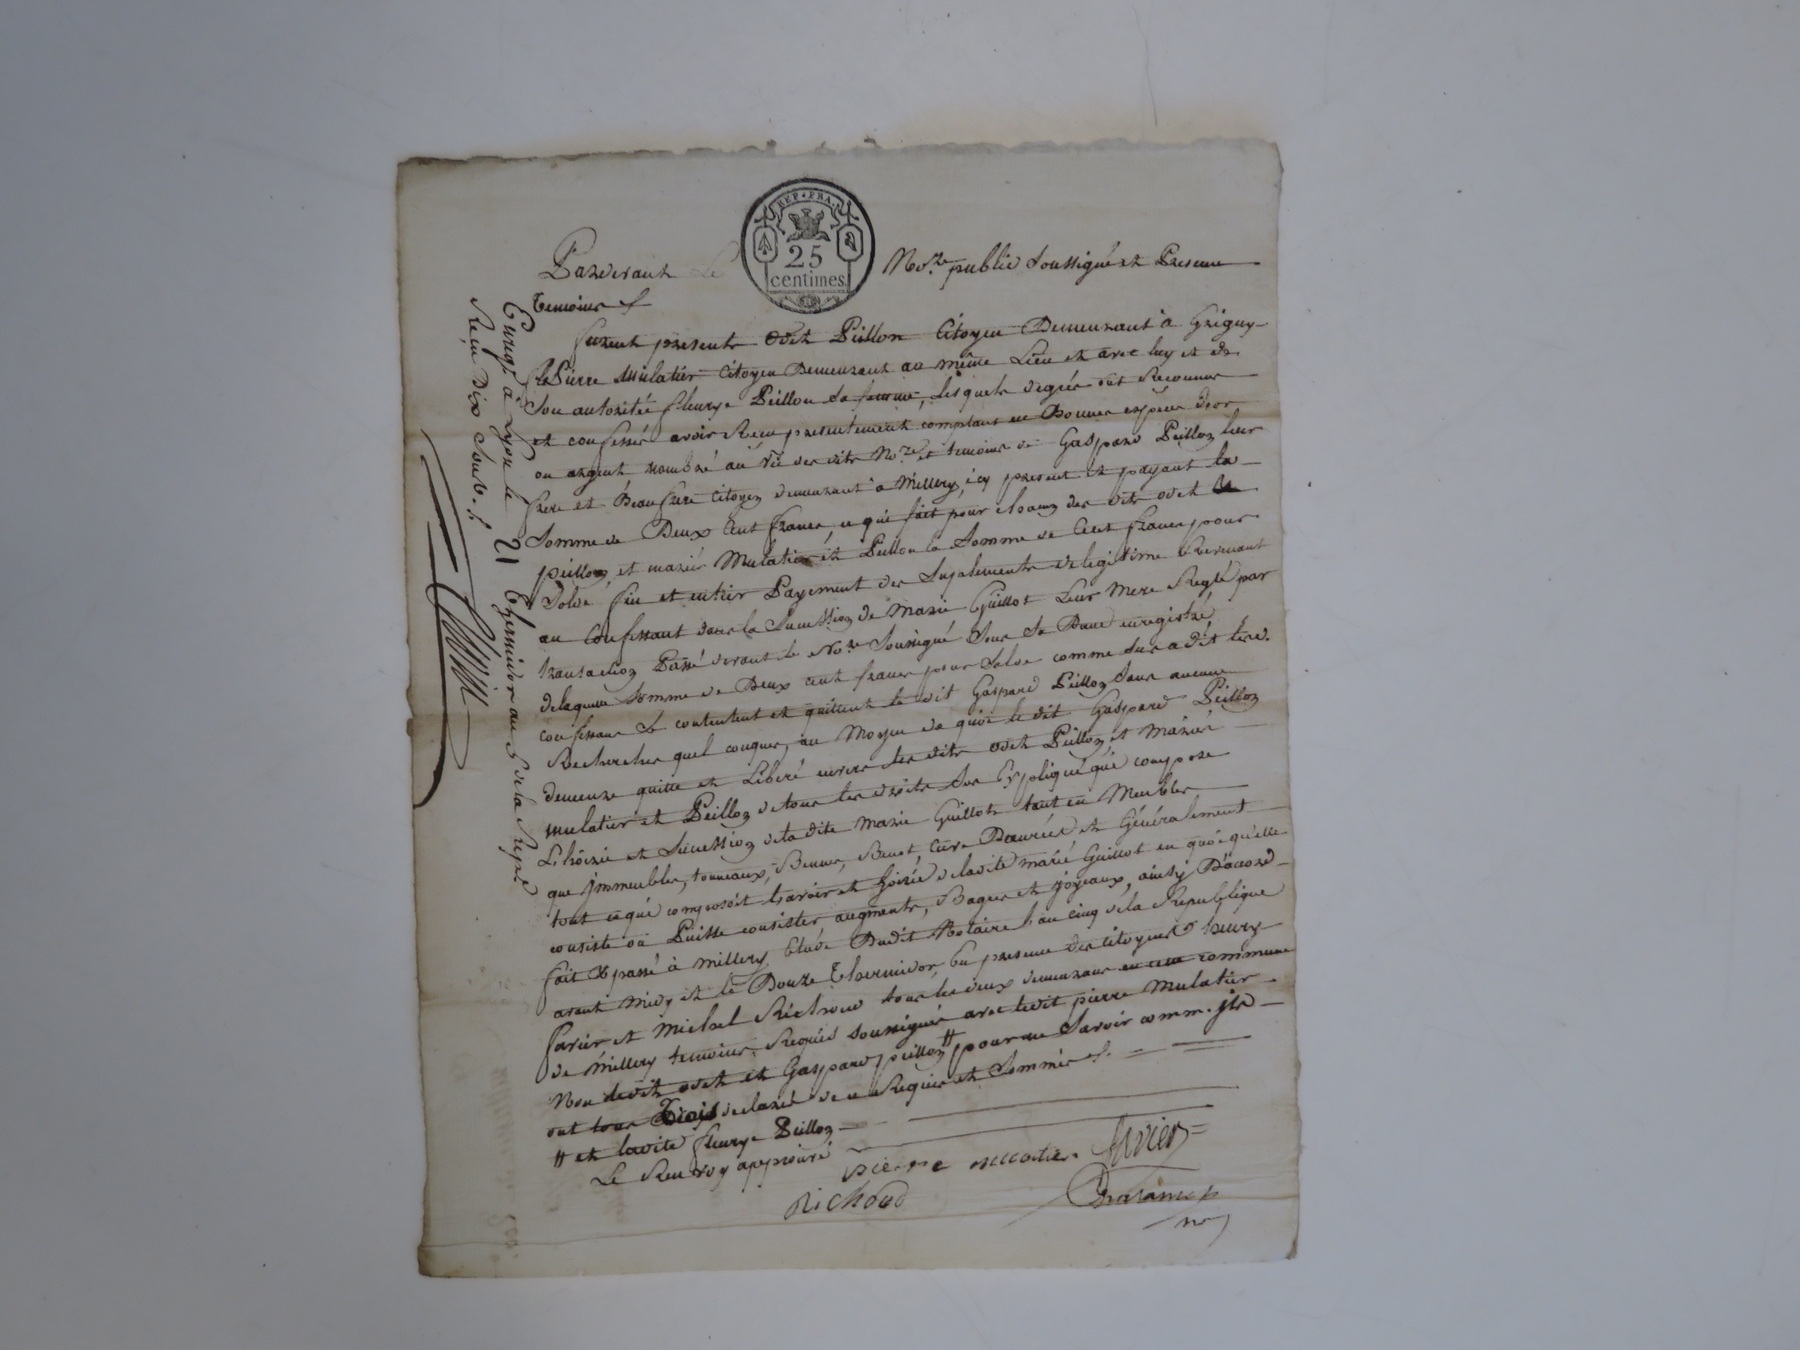 REP. FRA.
25
centimes.
Pardevant Le Nore. public Soussigné et Presence
Temoins
furent presents Odet Peillon Citoyen Demeurant a Grigny
Pierre Mulatier Citoyen Demeurant au même Lieu et avec luy et de
Son autorité fleurye Peillon Sa femme, lesquels degrés ont Reconnus
et confessés avoir Reçu presentement comptant en Bonnes especes d'or
ou argent, nombré au vû des dits Nore. et temoins de Gaspard Peillon leur
frere et Beaufrere Citoyen demeurant a Millery, icy present et payant la
Somme de Deux Cent francs, ce qui fait pour chacun des dits odet
peillon, et mariés Mulatier et Peillon la Somme de Cent francs pour
Solde fin et entier Payement des Supléments de legitime Revenant
au Confessant dans la Succession de Marie Guillot Leur Mere Reglé par
transaction Passé devant le Nore. Soussigné Sous Sa Date enregistré,
delaquelle Somme de Deux cent francs pour Solde comme Sus a dit les d.
confessans Se contentent et quittent le dit Gaspard Peillon Sans aucune
Recherches quel conques, au Moyen de quoi le dit Gaspard Peillon
demeure quitte et Liberé envers les dits odet Peillon et Mariés
mulatier et Peillon de tous les droits Sus Expliqué qui compose
L'hoirie et Succession de la dite Marie Guillot tant en Meubles
que Jmmeubles, tonneaux, Bennes, Cuve Dœurées et Généralement
tout ce qui composoit L'avoir et hoirie de la dite marie Guillot en quoi qu'elle
consiste ou Puisse consister, augments, Bagues et joyeaux, ainsy D'accord
fait et passé à Millery, Etude Dudit Notaire L'an cinq de la Republique
avant Midy et le Douze Thermidor, En presence des Citoyens henry
favier et Michel Richoud tous les deux demeurans en cette commune
de Millery temoins Requis Soussignés avec ledit pierre Mulatier
Non ledit odet et Gaspard peillon # pour ne Savoir comm. ils
ont tous Trois declarés de ce Requis et Sommés
# et ladite fleurye Peillon
Le Renvoy approuvé
pierre mulatier favier
Richoud
nre
Enregé. à Lyon le 21 Thermidor an 5 de la Repe.
Reçu Dix Sous.